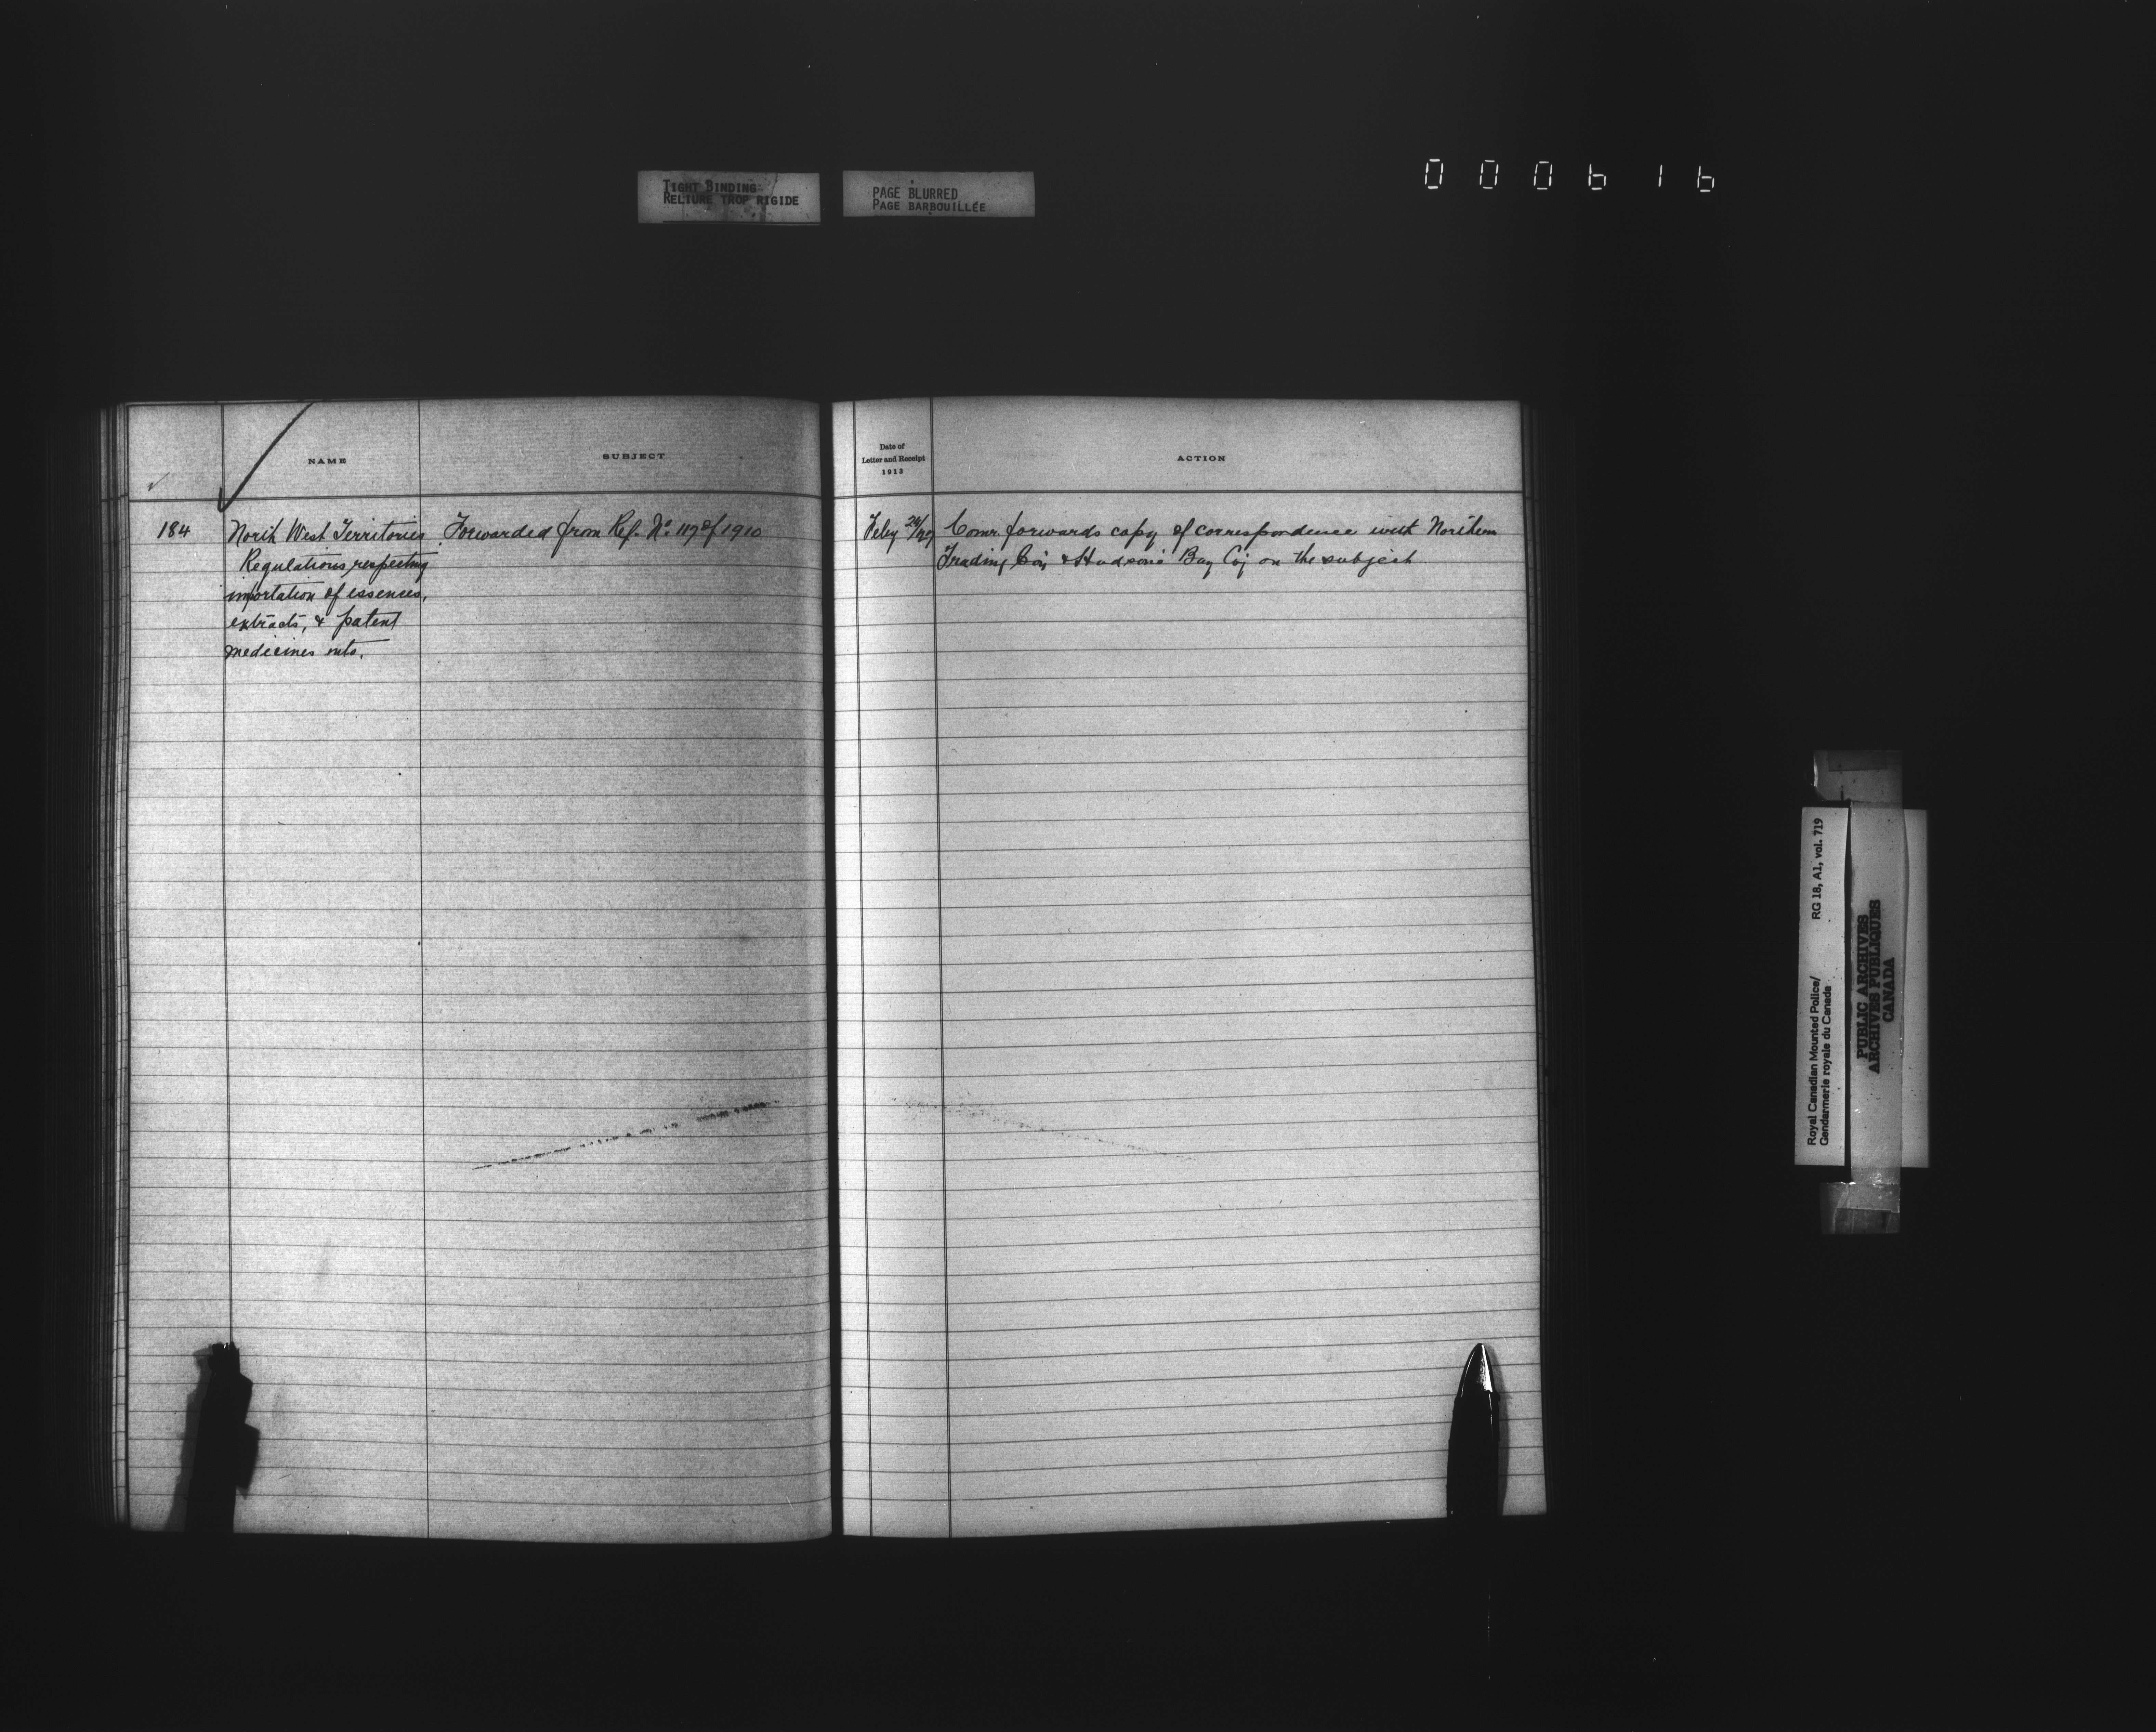 TIGHT BINDING
RELIURE TROP RIGIDE
PAGE BLURRED
PAGE BARBOUILLÉE
000616
NAME
SUBJECT
184
North West Territories
Regulations respecting
importation of essences,
extracts, & patent
medicines into.
Forwarded from Ref. No. 117 of 1910
Date of
Letter and Receipt
1913
ACTION
Feby 24/27
Comr. forwards copy of correspondence with Northern
Trading Coy & Hudson's Bay Coy on the subject
Royal Canadian Mounted Police/ RG 18, A1, vol. 719
Gendarmerie royale du Canada
PUBLIC ARCHIVES
ARCHIVES PUBLIQUES
CANADA